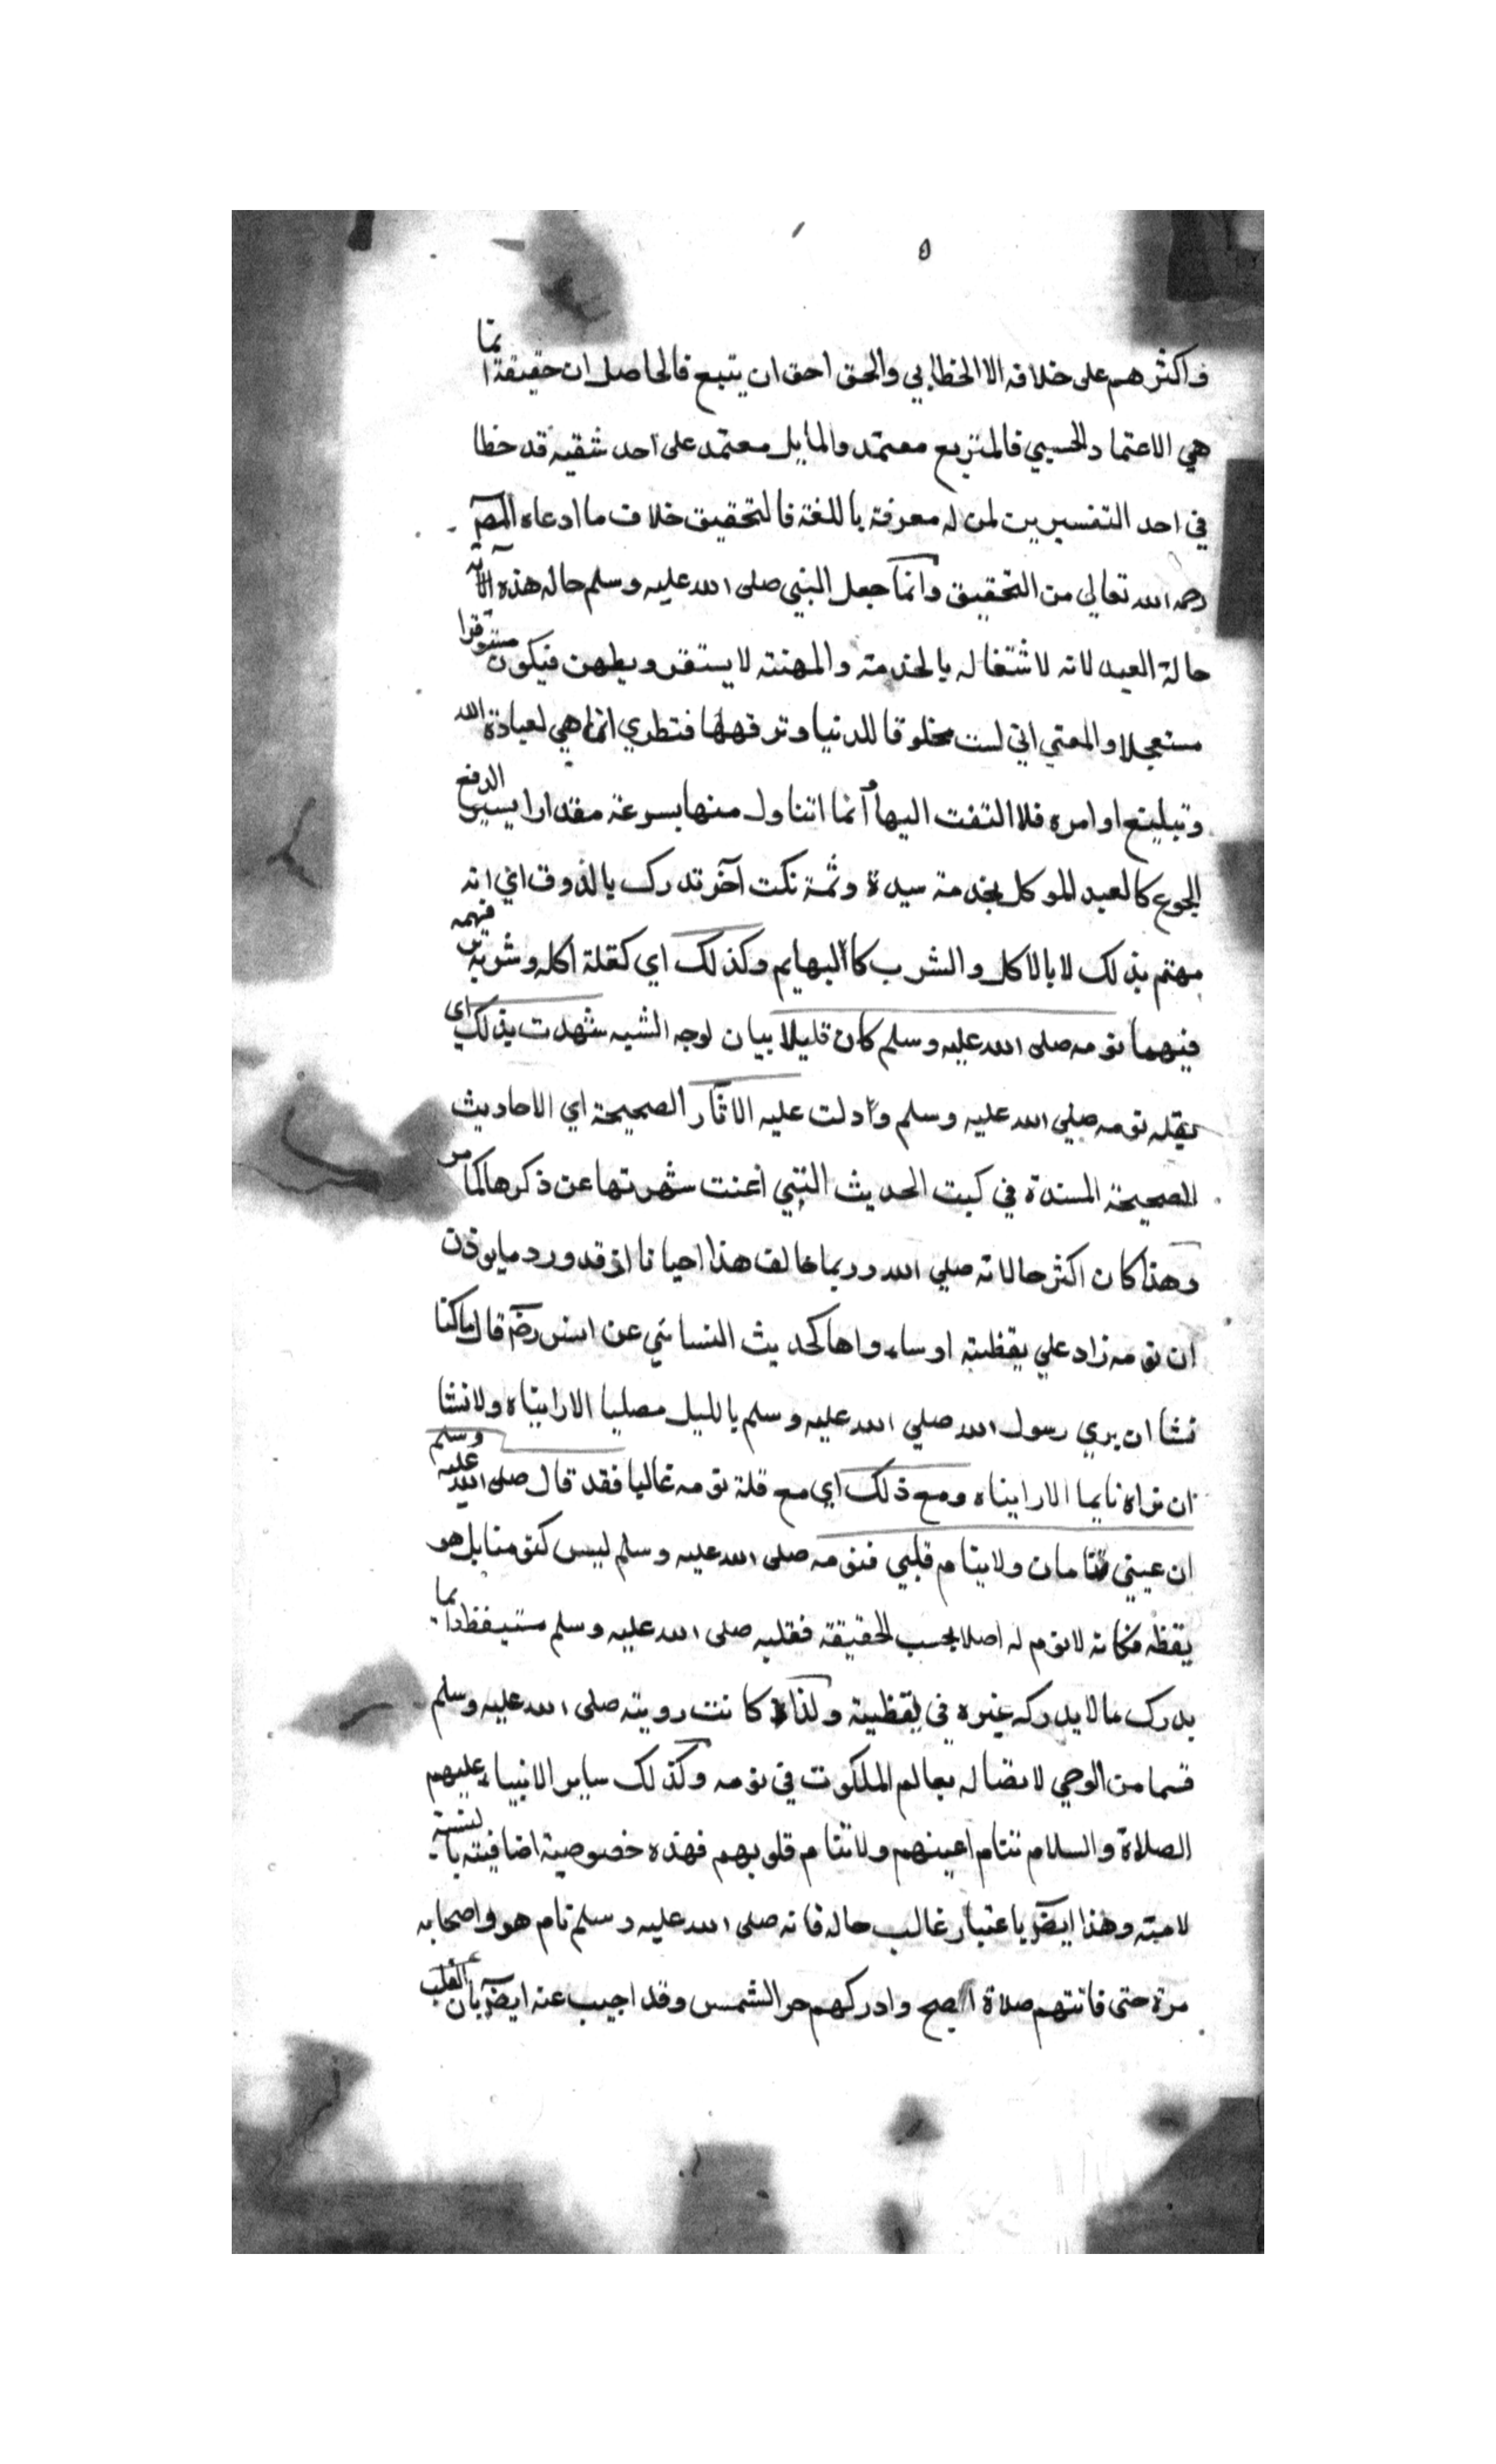 ٥
فاكثرهم على خلافه الا الخطابي والحق احق ان يتبع فالحاصل ان حقيقة انما
هي الاعتماد الحسي فالمتربع معتمد والمايل معتمد على احد شقيه قد خطا
في احد التفسيرين لمن له معرفة باللغة فالتحقيق خلاف ما ادعاه المصـ
رحمه الله تعالي من التحقيق وانما جعل النبي صلى الله عليه وسلم حاله هذه الآية
حالة العبد لانه لاشتغاله بالخدمة والمهنة لا يستقر ويطهن فيكون مستوفزا
مستعجلا والمعني اني لست مخلوقا للدنيا وترفهها فنظري انما هي لعبادة الله
وتبليغ اوامره فلا التفت اليها وانما اتناول منها بسرعة مقدارا يسيرا لدفع
الجوع كالعبد الموكل بخدمة سيدة وثمة نكت آخر تدرك بالذوق اي انه
مهتم بذلك لا بالاكل والشرب كالبهايم وكذلك اي كقلة اكله وشربه فهمه
فيهما نومه صلى الله عليه وسلم كان قليلا بيان لوجه الشبه شهدت بذلك اي
بقلة نومه صلي الله عليه وسلم وادلت عليه الاثار الصحيحة اي الاحاديث
الصحيحة المسندة في كبت الحديث التي اغنت شهرتها عن ذكرها كما مر
وهذا كان اكثر حالاته صلي الله وربما خالف هذا احيانا اذ قد ورد ما يوذن
ان نومه زاد علي يقظته او ساواها كحديث النسائي عن انس رضـ قال ما كنا
نشا ان يري رسول الله صلي الله عليه وسلم بالليل مصليا الا رايناه ولا نشا
ان نراه نايما الا رايناه ومع ذلك اي مع قلة نومه غالبا فقد قال صلى الله عليه وسلم
ان عيني تنامان ولا ينام قلبي فنومه صلى الله عليه وسلم ليس كنومنا بل هو
يقظه فكانه لا نوم له اصلا بحسب الحقيقة فقلبه صلى الله عليه وسلم مستيقظ دايما
يدرك ما لا يدركه غيره في يقظته ولذا كانت رويته صلى الله عليه وسلم
قسما من الوحي لاتصاله بعالم الملكوت في نومه وكذلك ساير الانبياء عليهم
الصلاة والسلام تنام اعينهم ولا تنام قلوبهم فهذه خصوصية اضافيته بالنسبة
لامته وهذا ايضـ باعتبار غالب حاله فانه صلى الله عليه وسلم نام هو واصحابه
مرة حتى فاتتهم صلاة الصبح وادركهم حر الشمس وقد اجيب عنه ايضـ بان القلب